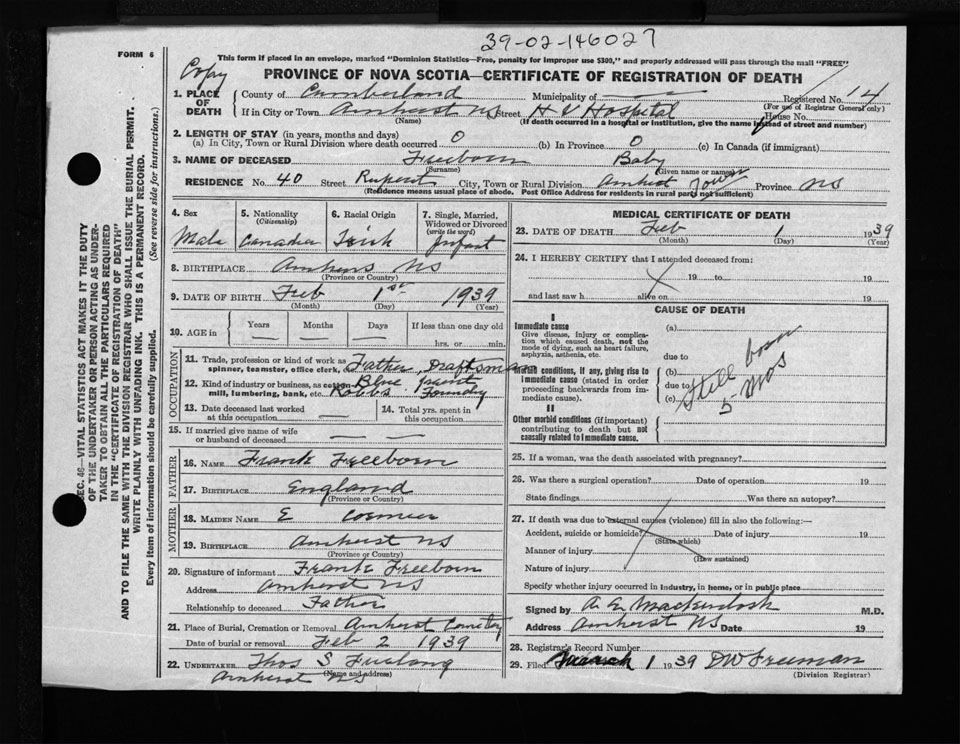 39-02-146027
FORM 6
This form if placed in an envelope, marked "Dominion Statistics—Free, penalty for improper use $300," and properly addressed will pass through the mail "FREE"
Copy
PROVINCE OF NOVA SCOTIA—CERTIFICATE OF REGISTRATION OF DEATH
1. PLACE OF DEATH
County of Cumberland Municipality of — Registered No. 14
(For use of Registrar General only)
If in City or Town Amherst NS Street H V Hospital House No.
(Name) (If death occurred in a hospital or institution, give the name instead of street and number)
2. LENGTH OF STAY (in years, months and days)
(a) In City, Town or Rural Division where death occurred 0 (b) In Province 0 (c) In Canada (if immigrant)
3. NAME OF DECEASED Freeborn Baby
(Surname) (Given name or names)
RESIDENCE No. 40 Street Rupert City, Town or Rural Division Amherst Town Province NS
(Residence means usual place of abode. Post Office Address for residents in rural parts not sufficient)
4. Sex
Male
5. Nationality
(Citizenship)
Canadian
6. Racial Origin
Irish
7. Single, Married, Widowed or Divorced
(write the word)
Infant
8. BIRTHPLACE Amherst NS
(Province or Country)
9. DATE OF BIRTH Feb 1st 1939
(Month) (Day) (Year)
10. AGE in Years Months Days If less than one day old
— — — hrs. or min.
OCCUPATION
11. Trade, profession or kind of work as spinner, teamster, office clerk, Father, Draftsman
12. Kind of industry or business, as cotton mill, lumbering, bank, etc. Blue print
Robbs Foundry
13. Date deceased last worked at this occupation —
14. Total yrs. spent in this occupation
15. If married give name of wife or husband of deceased — —
FATHER
16. NAME Frank Freeborn
17. BIRTHPLACE England
(Province or Country)
MOTHER
18. MAIDEN NAME E Cormier
19. BIRTHPLACE Amherst NS
(Province or Country)
20. Signature of informant Frank Freeborn
Address Amherst NS
Relationship to deceased Father
21. Place of Burial, Cremation or Removal Amherst Cemetery
Date of burial or removal Feb 2 1939
22. UNDERTAKER Thos S Furlong
(Name and address)
Amherst NS
MEDICAL CERTIFICATE OF DEATH
23. DATE OF DEATH Feb 1 1939
(Month) (Day) (Year)
24. I HEREBY CERTIFY that I attended deceased from:
19 to 19
and last saw h alive on 19
CAUSE OF DEATH
I
Immediate cause
Give disease, injury or complication which caused death, not the mode of dying, such as heart failure, asphyxia, asthenia, etc.
(a)
due to
Morbid conditions, if any, giving rise to immediate cause (stated in order proceeding backwards from immediate cause).
(b)
due to
(c)
Still born
5 Mos
II
Other morbid conditions (if important) contributing to death but not causally related to immediate cause.
25. If a woman, was the death associated with pregnancy?
26. Was there a surgical operation? Date of operation 19
State findings Was there an autopsy?
27. If death was due to external causes (violence) fill in also the following:—
Accident, suicide or homicide? Date of injury 19
(State which)
Manner of injury
(How sustained)
Nature of injury
Specify whether injury occurred in industry, in home, or in public place
Signed by A. E. Mackintosh M.D.
Address Amherst NS Date 19
28. Registrar's Record Number
29. Filed March 1 1939 DW Freeman
(Division Registrar)
SEC. 46—VITAL STATISTICS ACT MAKES IT THE DUTY
OF THE UNDERTAKER OR PERSON ACTING AS UNDER-
TAKER TO OBTAIN ALL THE PARTICULARS REQUIRED
IN THE "CERTIFICATE OF REGISTRATION OF DEATH"
AND TO FILE THE SAME WITH THE DIVISION REGISTRAR WHO SHALL ISSUE THE BURIAL PERMIT.
WRITE PLAINLY WITH UNFADING INK. THIS IS A PERMANENT RECORD.
Every item of information should be carefully supplied. (See reverse side for instructions.)